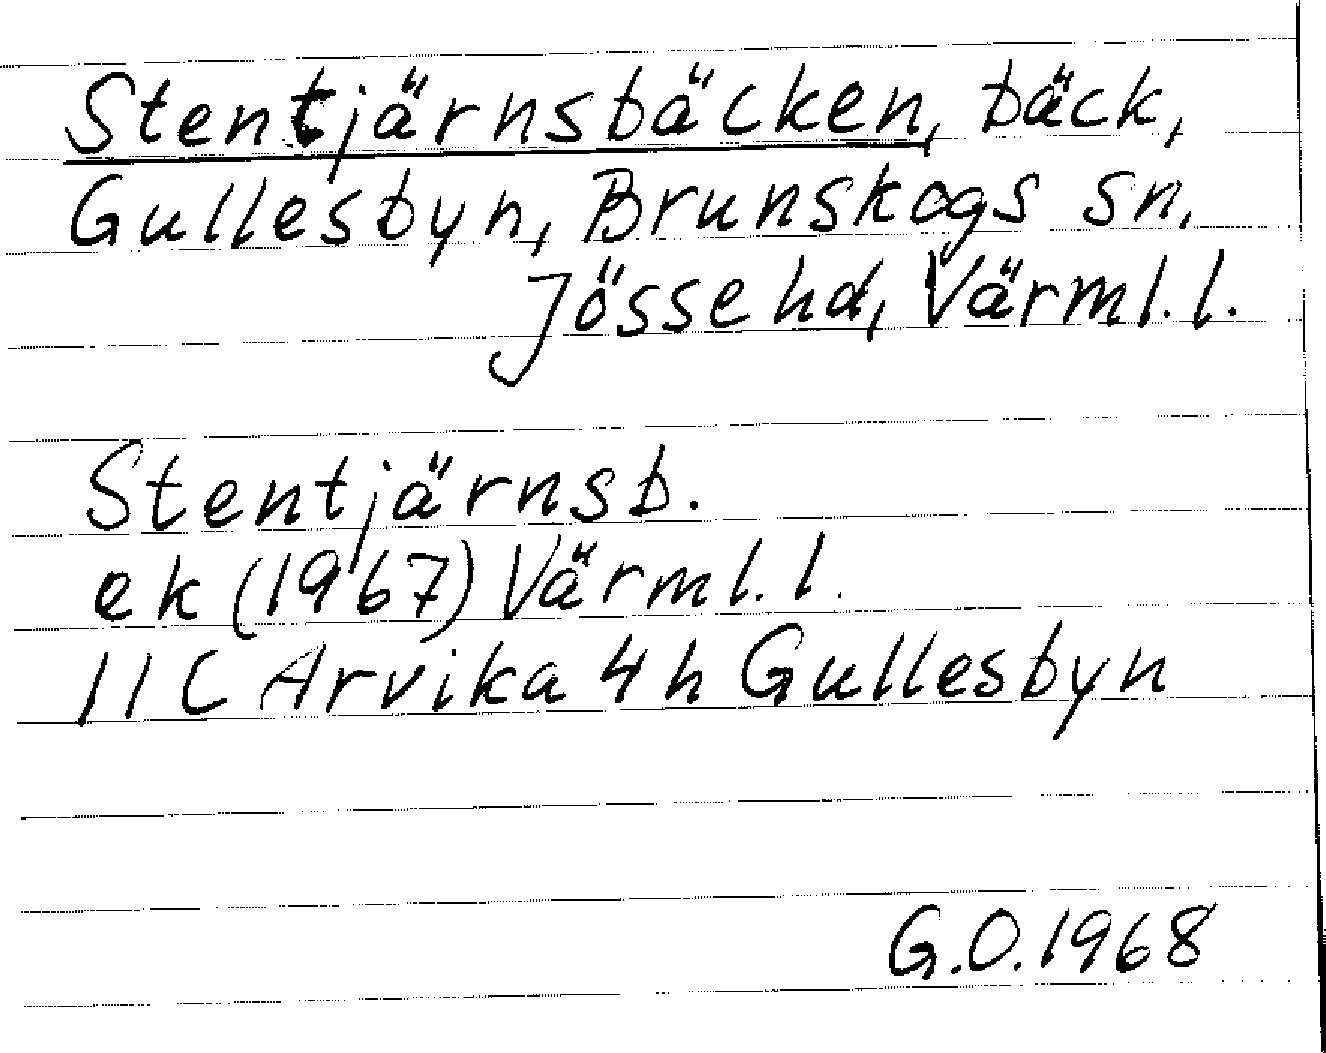 Stentjärnsbäcken, bäck,
Gullesbyn, Brunskogs sn,
Jösse hd, Värml. l.
Stentjärnsb.
ek (1967) Värml. l.
11 C Arvika 4 h Gullesbyn
G.O. 1968